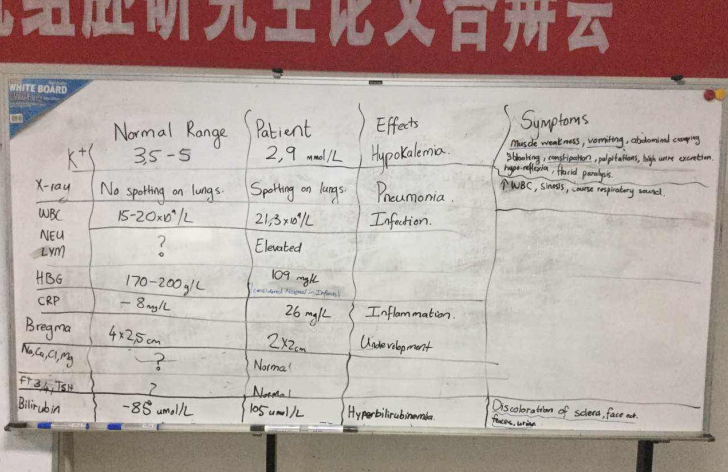 组胚研究生论文答辩会
WHITE BOARD
Normal Range Patient Effects Symptoms
K+ 3,5-5 2,9 mmol/L Hypokalemia. Muscle weakness, vomiting, abdominal cramping
constipation, palpitations, high urine excretion,
flacid paralysis.
X-ray No spotting on lungs. Spotting on lungs. Pneumonia. ↑WBC, respiratory sound.
WBC 15-20x10⁹/L 21,3x10⁹/L Infection.
NEU ? Elevated
LYM
HBG 170-200g/L 109 mg/L
CRP -8mg/L 26 mg/L Inflammation.
Bregma 4x2,5cm 2x2cm
Na,Ca,Cl,Mg ? Normal
FT 3,4, TSH ? Normal
Bilirubin -85 umol/L 105 umol/L Hyperbilirubinemia. Discoloration of sclera, face